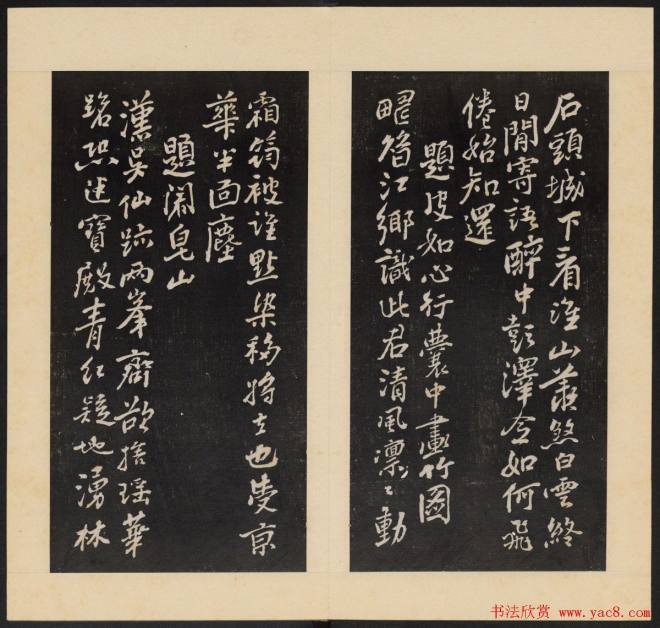 石頭城下看淮山羨煞白雲終
日閒寄語醉中彭澤令如何飛
倦始知還
題皮如心行囊中畫竹圖
江鄉識此君清風凜々動
霜筠被誰點染移將去也受京
華半面塵
題閤皂山
漢吳仙跡兩峯齊欲拾瑤華
路恐迷寶殿青紅疑地湧林
书法欣赏 www.yac8.com